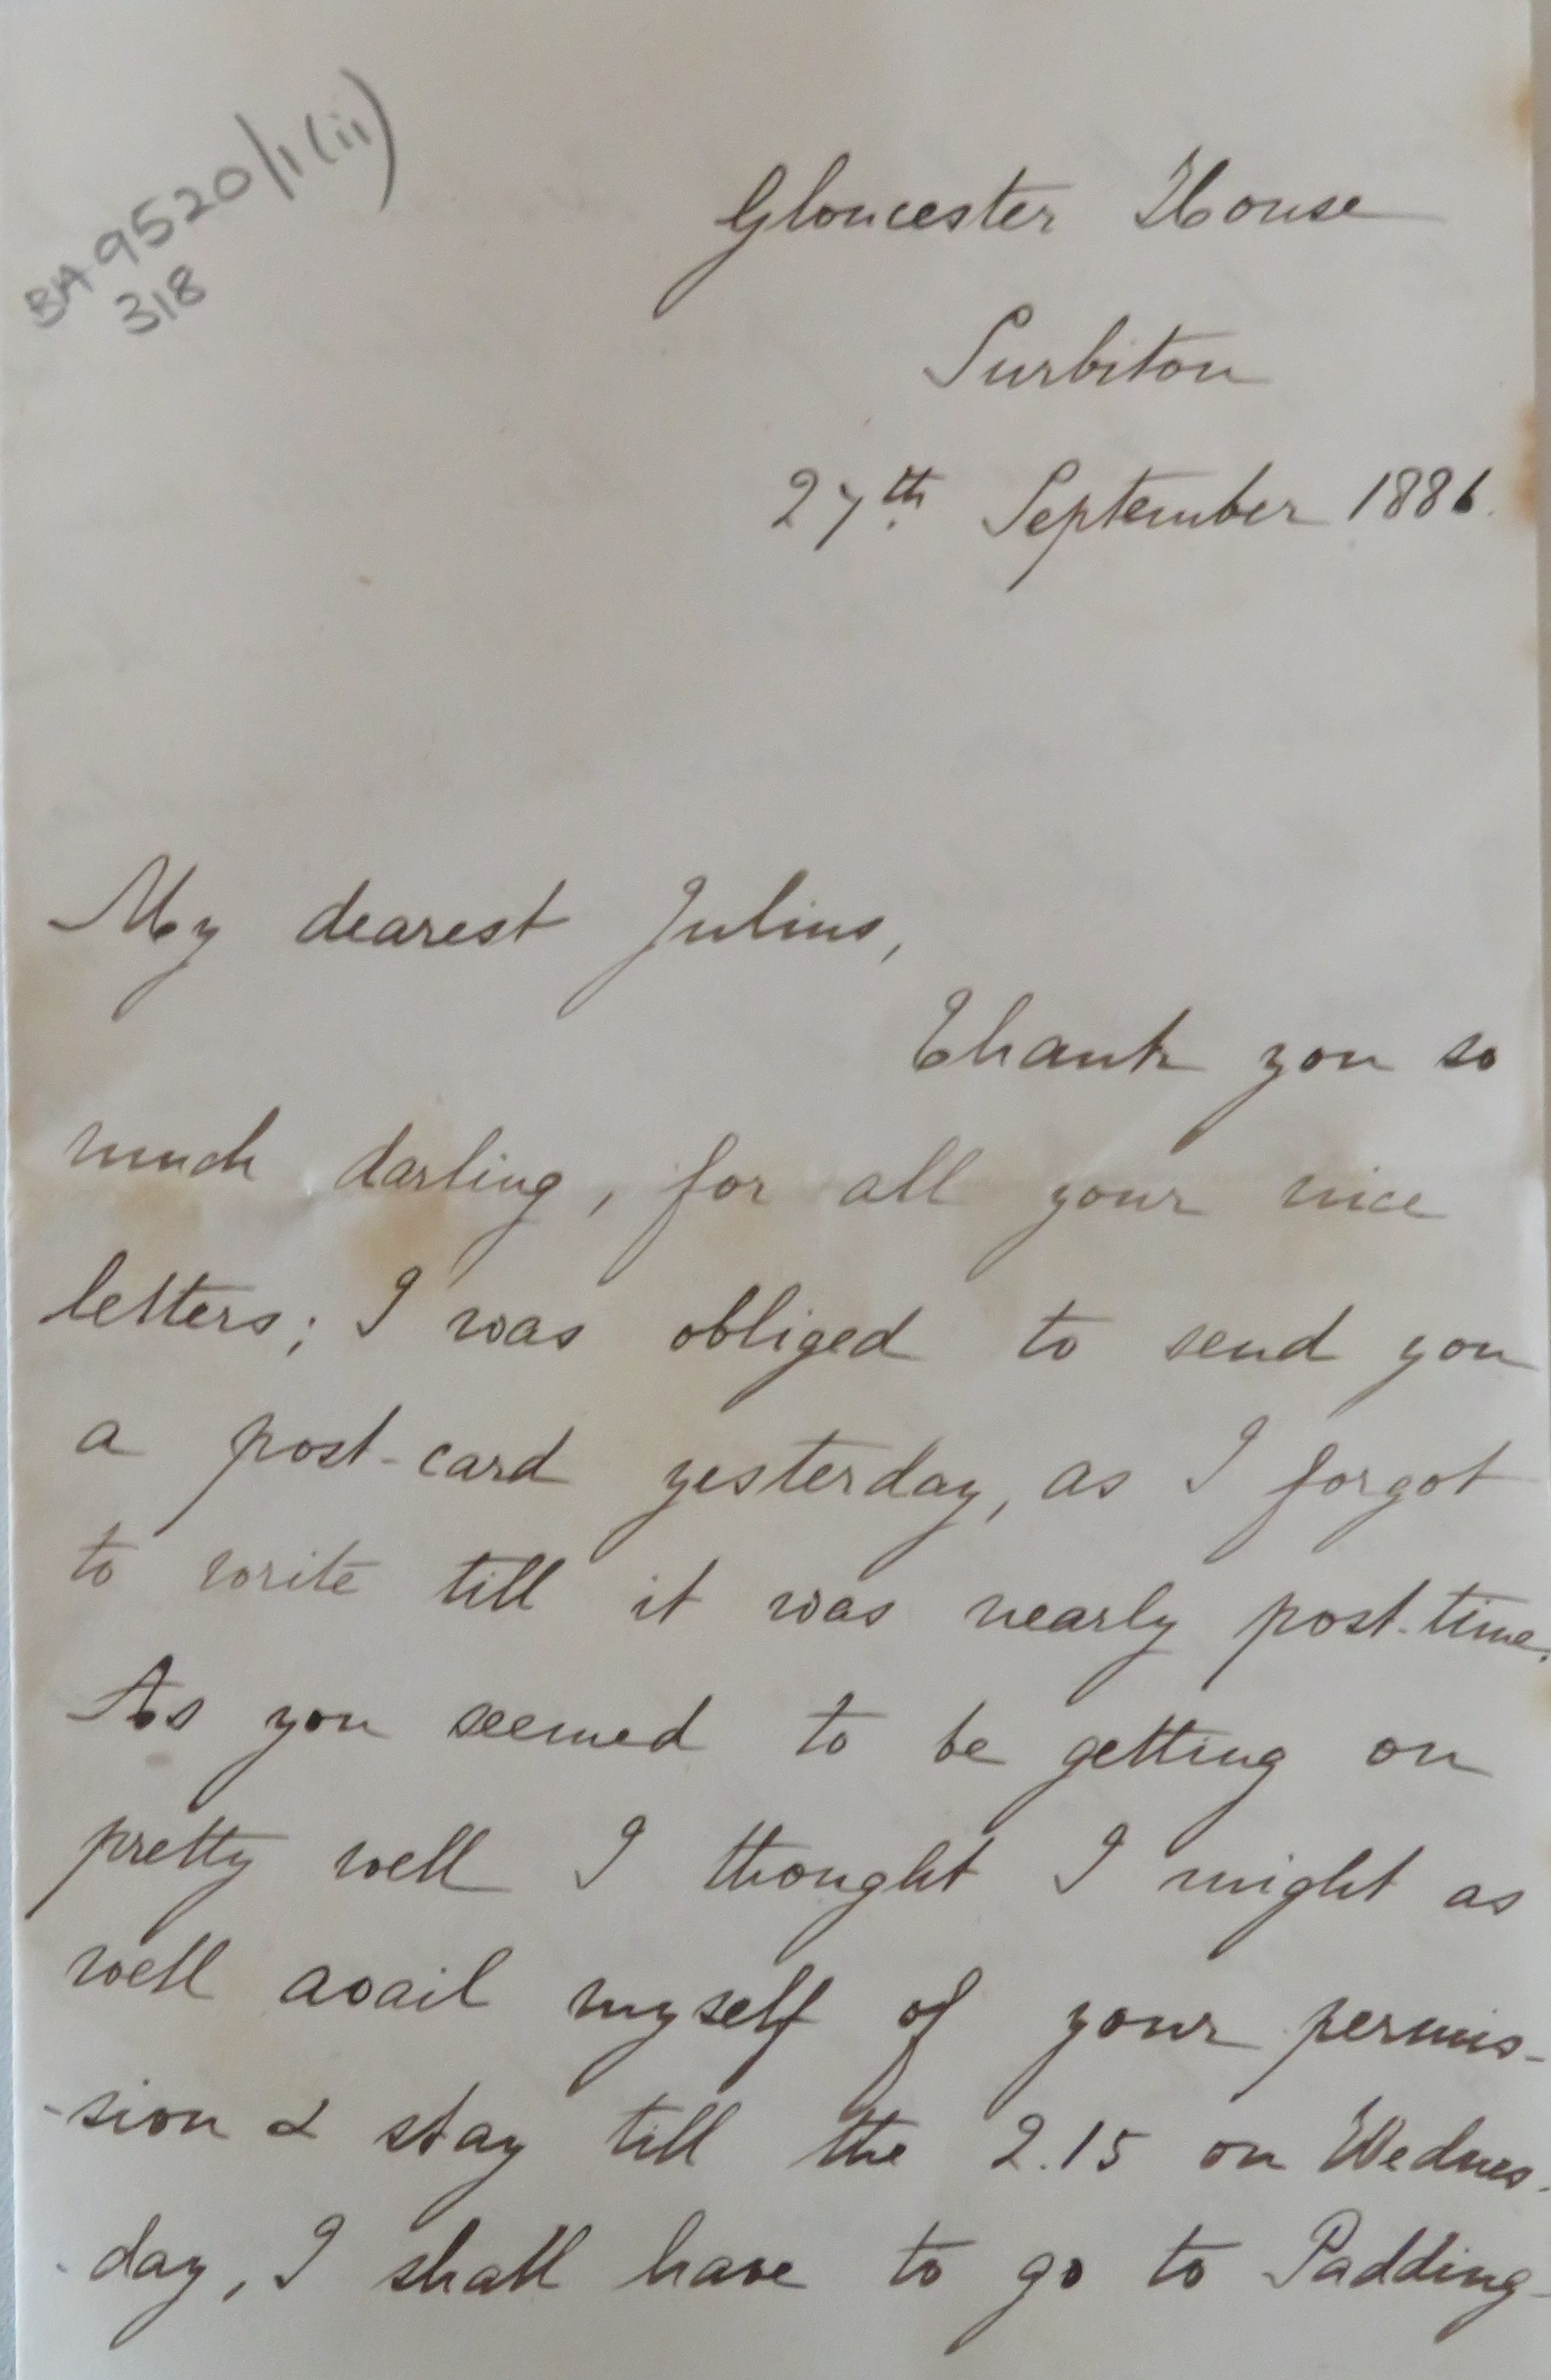 BA9520/1(ii)
318
Gloucester House
Surbiton
27th September 1886.
My dearest Julius,
Thank you so
much darling, for all your nice
letters; I was obliged to send you
a post-card yesterday, as I forgot
to write till it was nearly post-time.
As you seemed to be getting on
pretty well I thought I might as
well avail myself of your permis-
-sion & stay till the 2.15 on Wednes-
-day, I shall have to go to Padding-